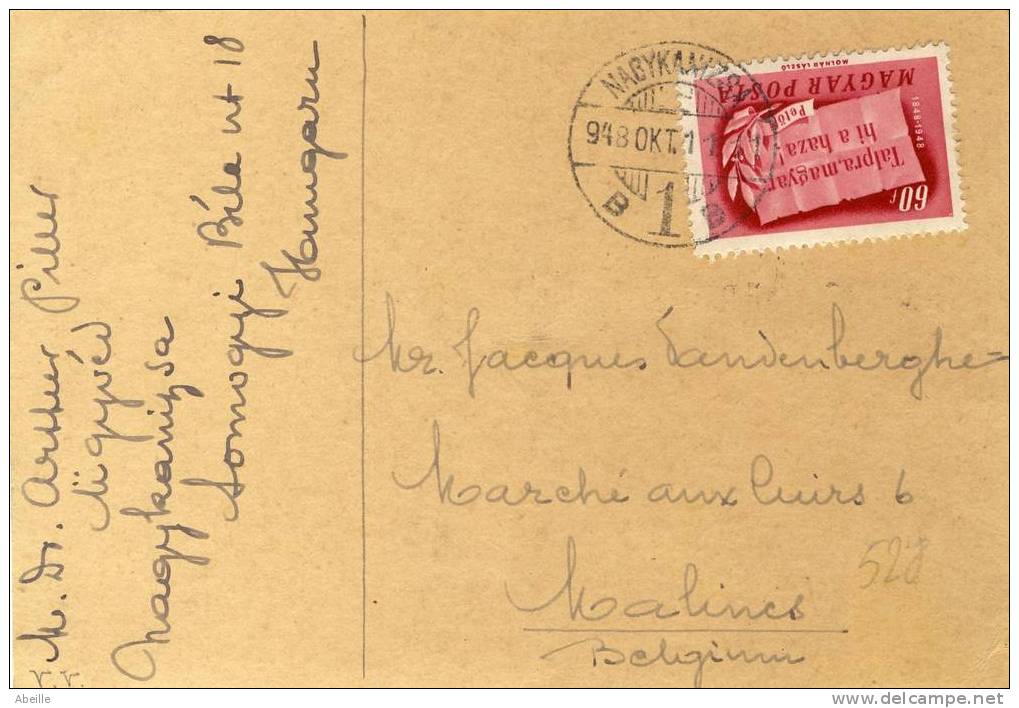 M. Dr. Arthur Piller
Ügyvéd
Nagykanizsa
Somogyi Béla ut 18
Hungary
NAGYKANIZSA
948 OKT. 1
B 1 B
MAGYAR POSTA
1848-1948
Talpra, magyar
hi a haza
Petőfi
60 f
MOLNÁR LÁSZLÓ
Mr. Jacques Vandenberghe-
Marché aux Cuirs 6
Malines
Belgium
Abeille
http://www.delcampe.net